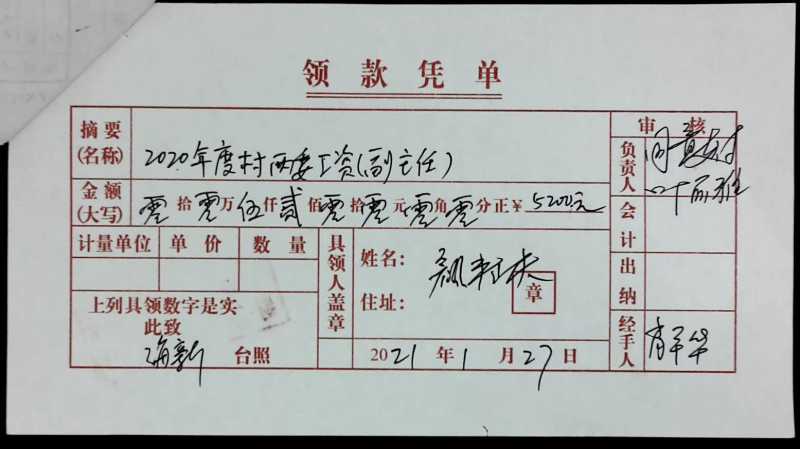 领款凭单
摘要(名称) 2020年度村两委工资(副主任)
审核
负责人 同意支付
金额(大写) 零拾零万伍仟贰佰零拾零元零角零分正¥5200元
会计
计量单位 单价 数量
具领人盖章
姓名：
住址：
章
出纳
上列具领数字是实
此致
海新 台照
2021年1月27日
经手人